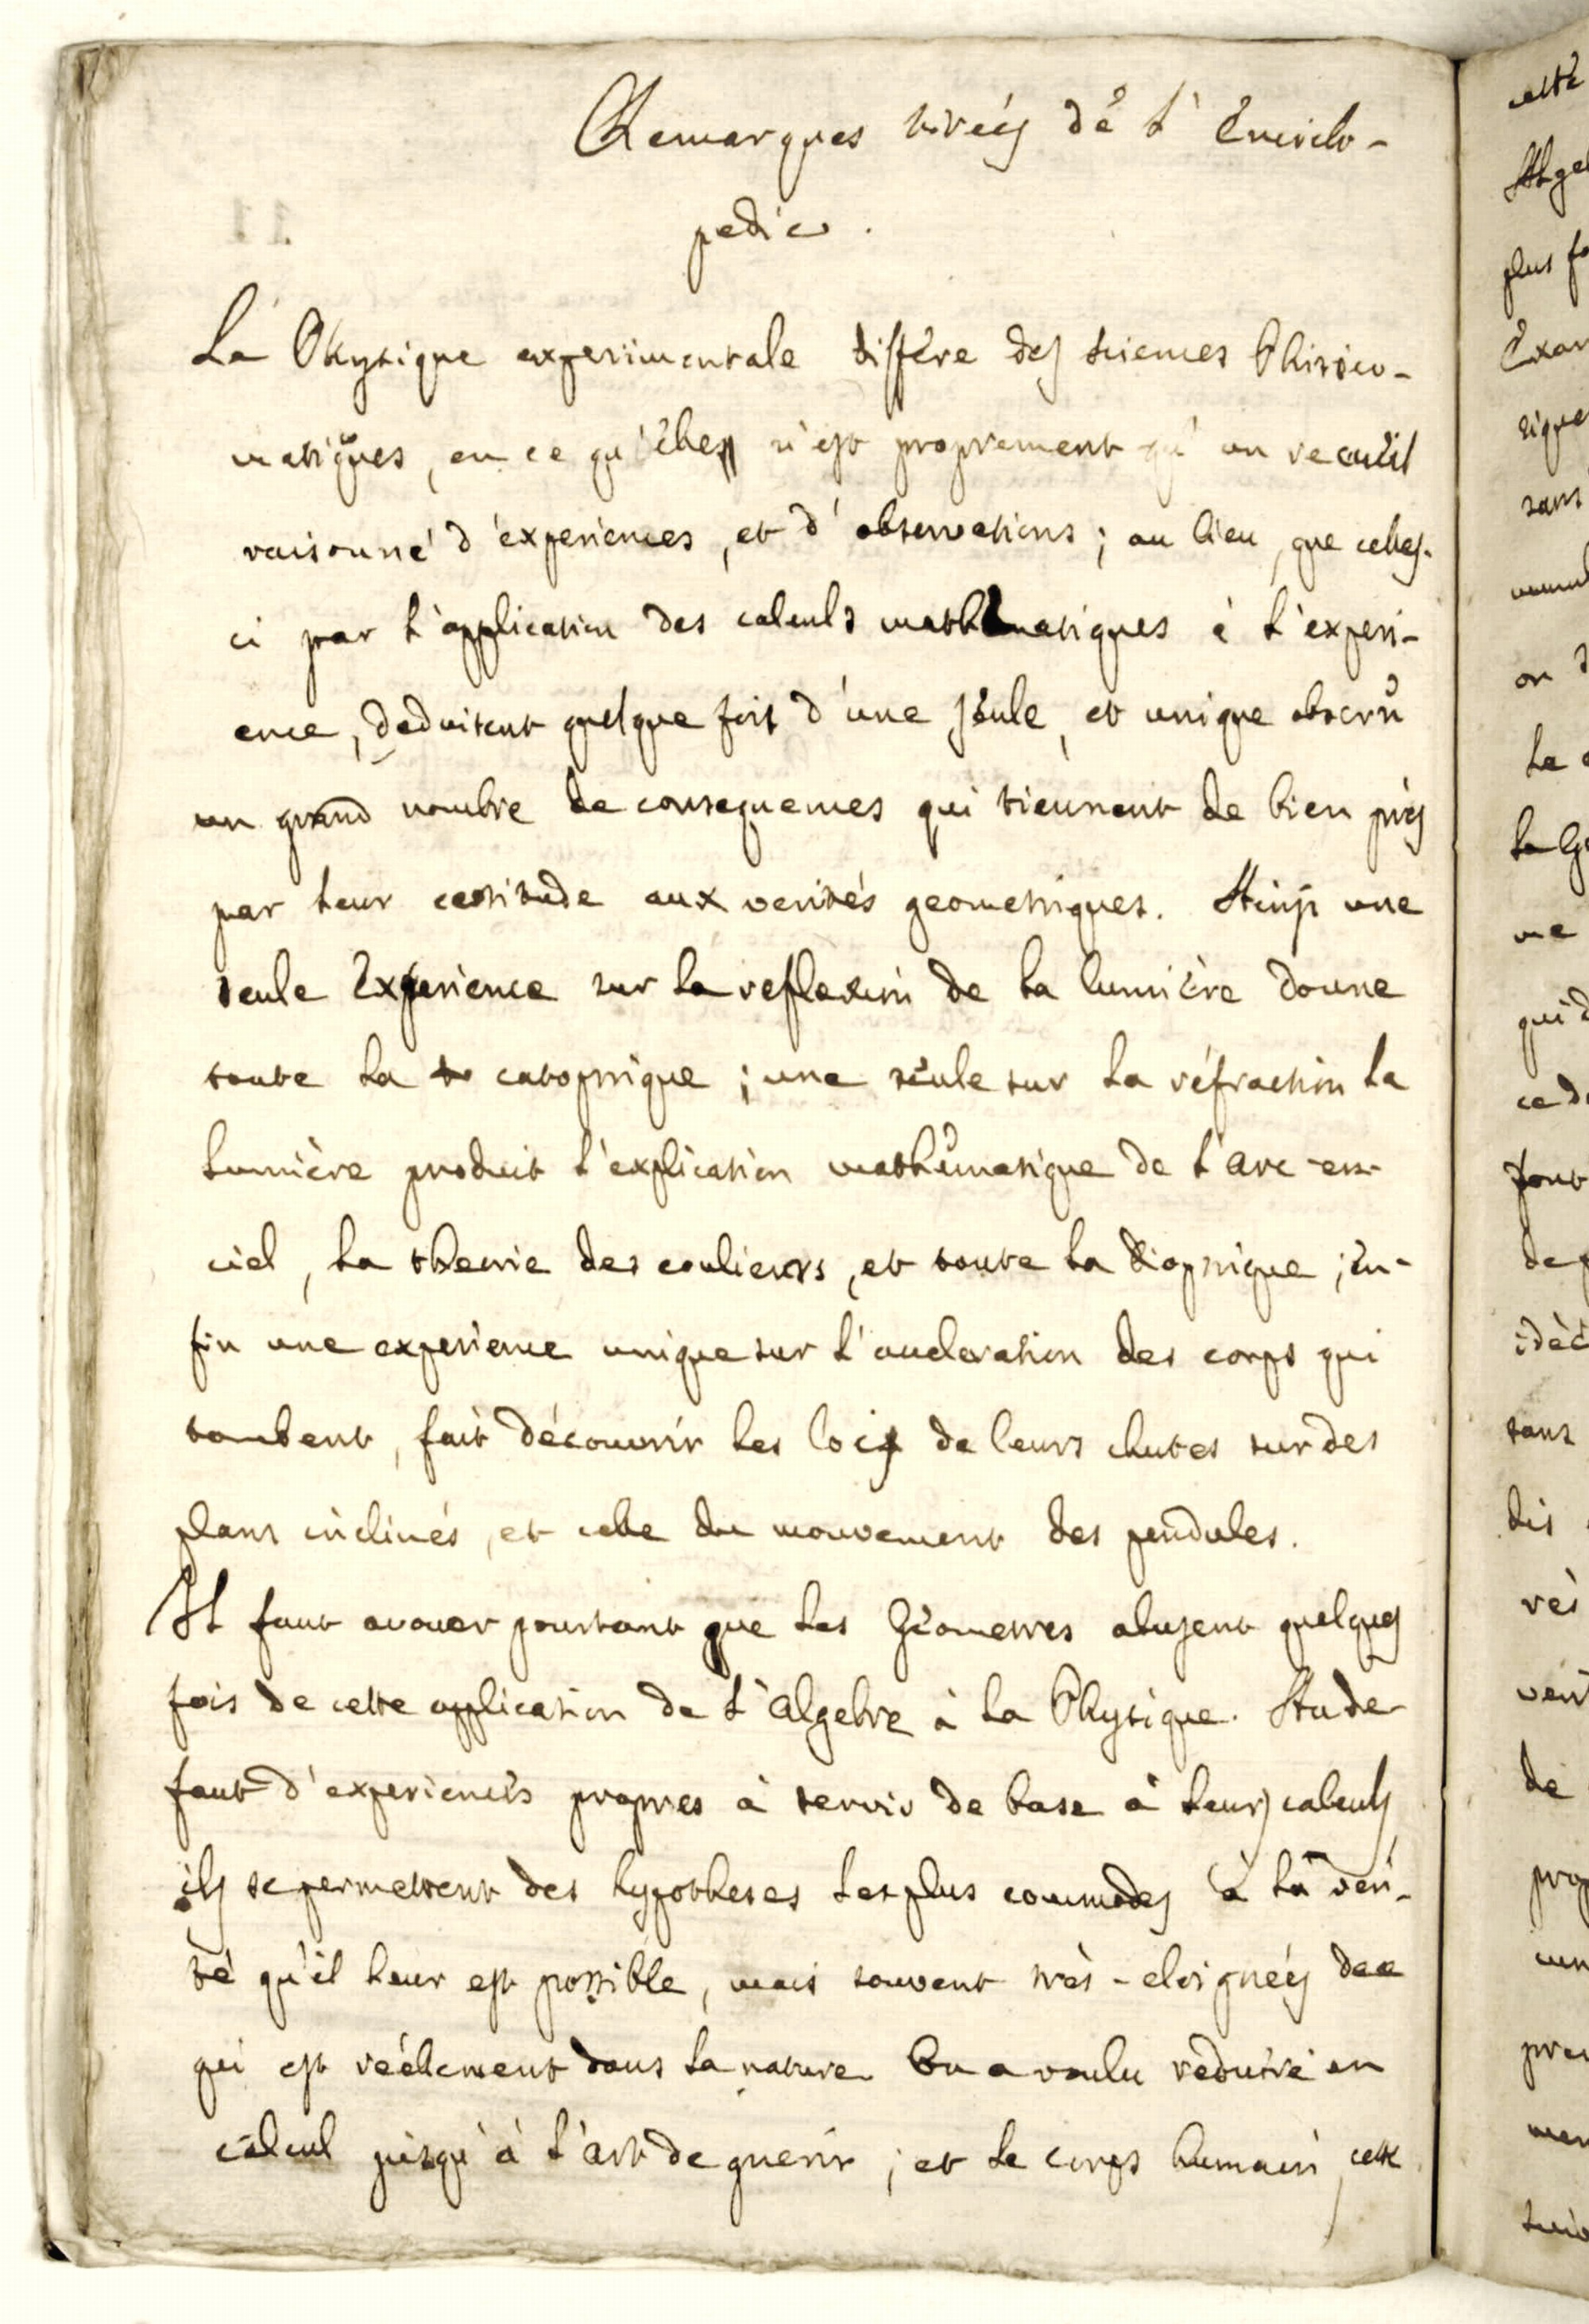 Remarques tirées dé l'Enciclo-
pedie.
La Physique experimentale differe des sciences Phisico-
matiques, en ce qu'elles n'est proprement qu'un recueil
raisonné d'experiences, et d'observations; au lieu, que celles-
ci par l'application des calculs mathematiques à l'experi-
ence, deduisent quelque fois d'une seule, et unique observ
un grand nombre de consequences qui tiennent de bien près
par leur certitude aux verités geometriques. Ainsi une
seule Experience sur la reflexion de la lumière donne
toute la catoptrique; une seule sur la réfraction la
lumière produit l'explication mathématique de l'arc-en-
ciel, la theorie des couleurs, et toute la Dioptrique; en-
fin une experience unique sur l'acceleration des corps qui
tombent, fait découvrir les lois de leurs chutes sur des
plans inclinés, et celle du mouvement des pendules.
Il faut avouer pourtant que les Géometres abusent quelques
fois de cette application de l'Algebre à la Physique. Au de-
faut d'experiences propres à servir de base à leurs calculs
ils se permettent des hypotheses les plus commodes à la veri-
té qu'il leur est possible, mais souvent très-eloignées de ce
qui est réelement dans la nature. On a voulu reduire en
calcul jusqu'à l'art de guerir; et le corps humain, cette
cette
plus
sans
on
La
me
qui
ce
de
sans
de